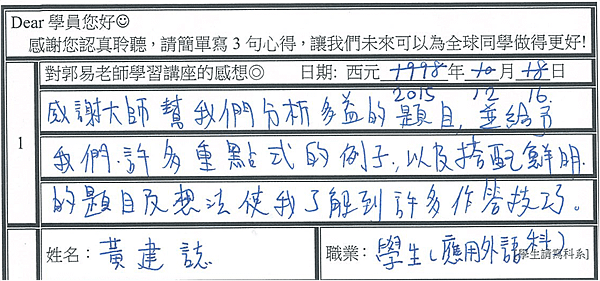 Dear 學員您好☺
感謝您認真聆聽，請簡單寫 3 句心得，讓我們未來可以為全球同學做得更好!
對郭易老師學習講座的感想◎ 日期: 西元 1998 年 10 月 18 日
2015 12 16
1
感謝大師幫我們分析多益的題目，並給予
我們許多重點式的例子，以及搭配鮮明
的題目及想法使我了解到許多作答技巧。
姓名：黃建誌 職業：學生(應用外語科)
[學生請寫科系]